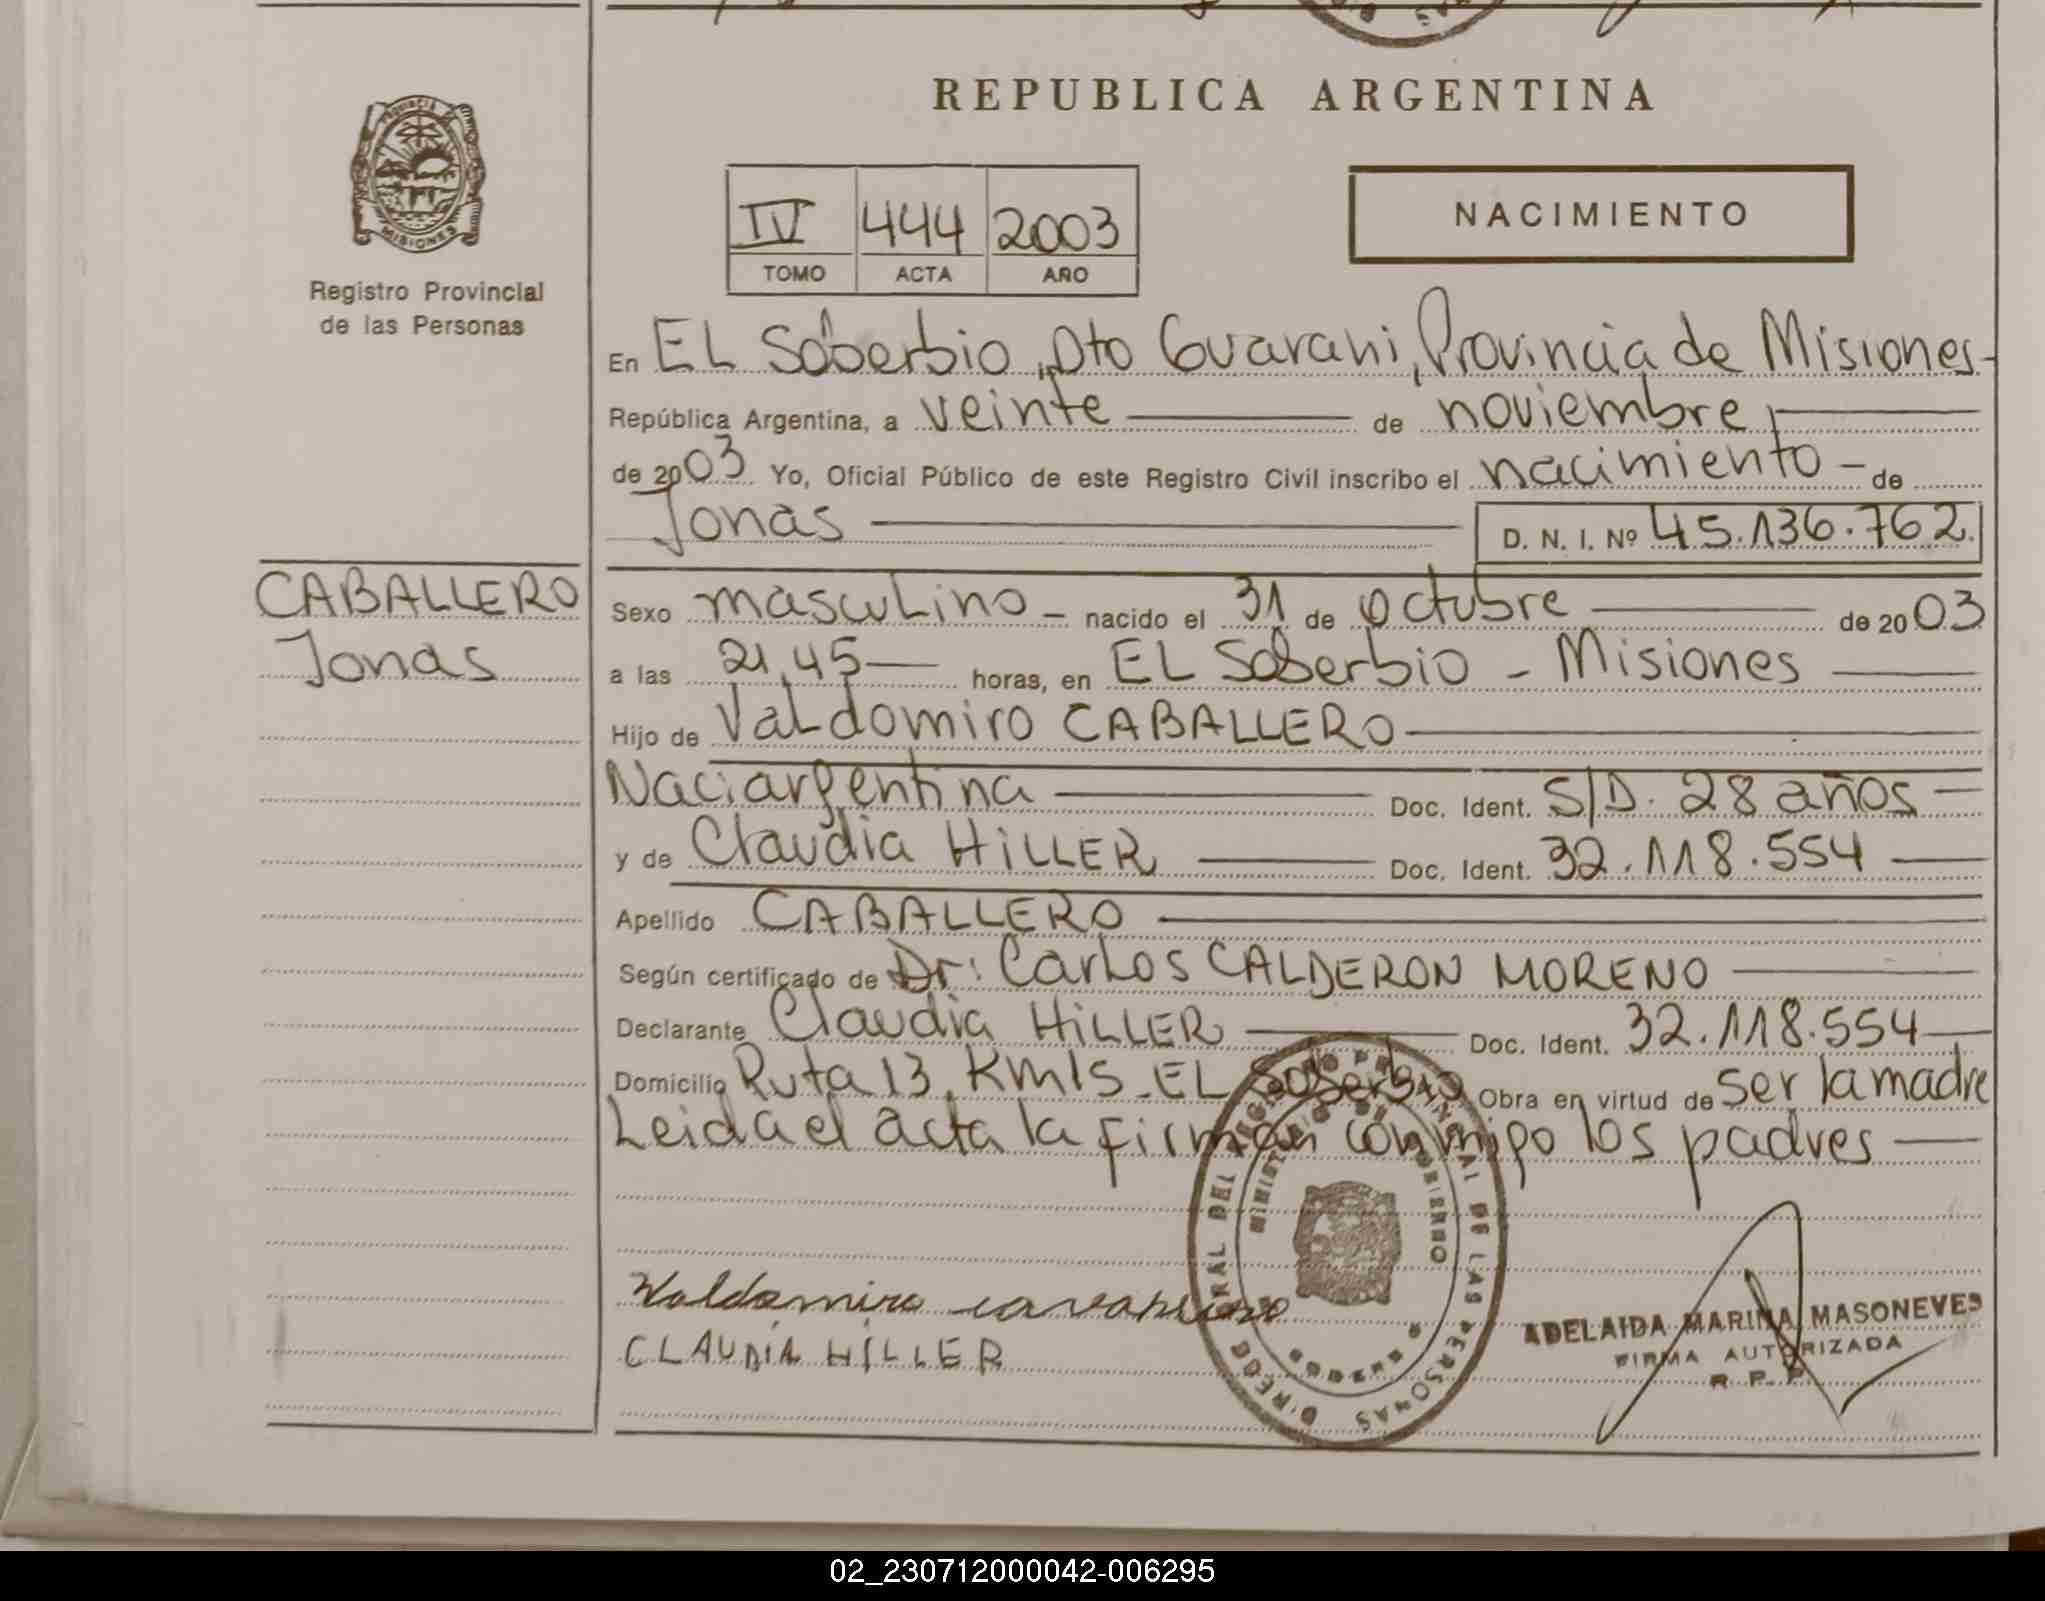 REPUBLICA ARGENTINA
PROVINCIA
MISIONES
Registro Provincial
de las Personas
IV 444 2003
TOMO ACTA AÑO
NACIMIENTO
En EL Soberbio, Dto Guarani, Provincia de Misiones-
República Argentina, a veinte de noviembre,
de 2003 Yo, Oficial Público de este Registro Civil inscribo el nacimiento - de
Jonas D. N. I. Nº 45.136.762.
CABALLERO
Jonas
Sexo masculino - nacido el 31 de octubre de 2003
a las 21,45 horas, en EL Soberbio - Misiones
Hijo de Valdomiro CABALLERO
Naci: argentina Doc. Ident. S/D. 28 años
y de Claudia HILLER Doc. Ident. 32.118.554
Apellido CABALLERO
Según certificado de Dr: Carlos CALDERON MORENO
Declarante Claudia HILLER Doc. Ident. 32.118.554
Domicilio Ruta 13, Km15 EL Soberbio Obra en virtud de ser la madre
Leida el acta la firman conmigo los padres
Valdomiro
CLAUDIA HILLER
DIRECC. GRAL DEL REGISTRO PROVINCIAL DE LAS PERSONAS
MINISTERIO DE GOBIERNO
ADELAIDA MARINA MASONEVES
FIRMA AUTORIZADA
R. P. P.
02_230712000042-006295